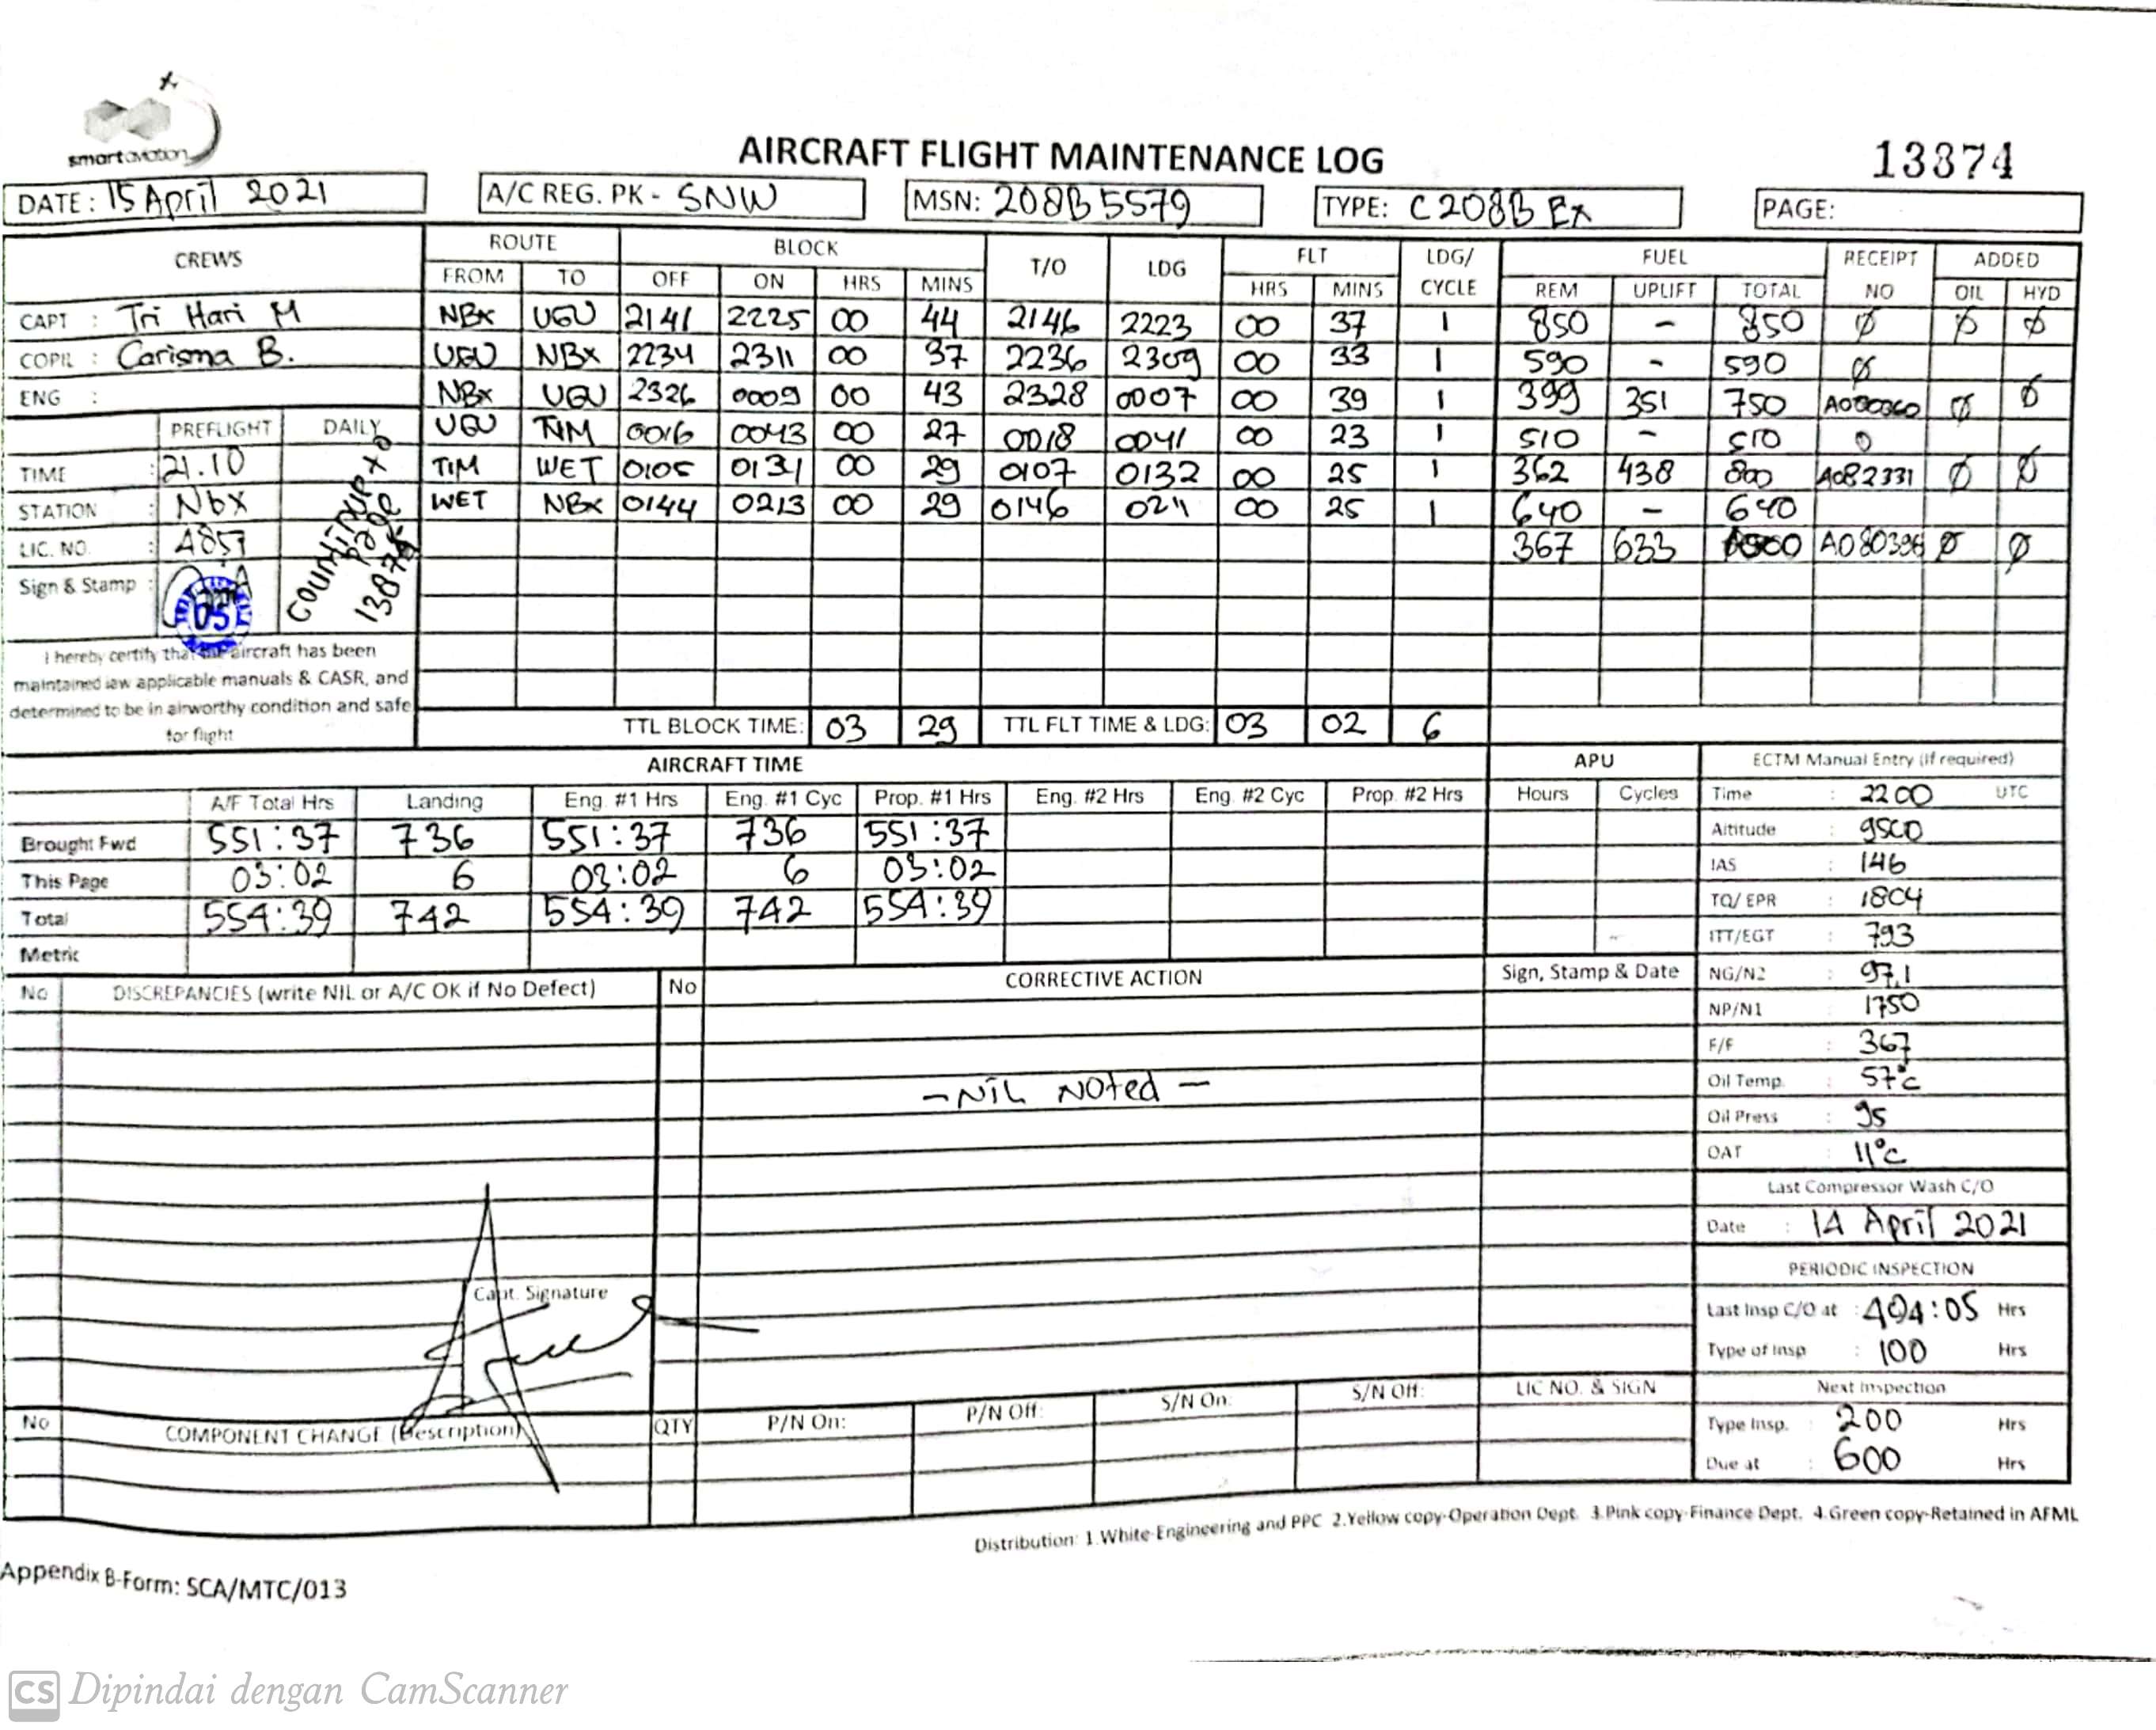 smart aviation
AIRCRAFT FLIGHT MAINTENANCE LOG
13874
DATE: 15 April 2021 A/C REG. PK - SNW MSN: 208B5579 TYPE: C208B Ex PAGE:
CREWS ROUTE BLOCK T/O LDG FLT LDG/ CYCLE FUEL RECEIPT NO ADDED
FROM TO OFF ON HRS MINS HRS MINS REM UPLIFT TOTAL OIL HYD
CAPT : Tri Hari M NBX UGU 2141 2225 00 44 2146 2223 00 37 1 850 - 850 Ø Ø Ø
COPIL : Carisma B. UGU NBX 2234 2311 00 37 2236 2309 00 33 1 590 - 590 Ø
ENG : NBX UGU 2326 0009 00 43 2328 0007 00 39 1 399 351 750 Ø Ø
PREFLIGHT DAILY UGU TIM 0016 0043 00 27 0018 0041 00 23 1 510 - 510 0
TIME : 21.10 TIM WET 0105 00 29 0107 0132 00 25 1 362 438 800 A082331 Ø Ø
STATION : Nbx WET NBX 0144 0213 00 29 0146 0211 00 25 1 640 - 640
LIC. NO. : 4857 367 633 A080396 Ø Ø
Sign & Stamp : 05
page 13875
I hereby certify that the aircraft has been
maintained iaw applicable manuals & CASR, and
determined to be in airworthy condition and safe
for flight
TTL BLOCK TIME: 03 29 TTL FLT TIME & LDG: 03 02 6
AIRCRAFT TIME APU
A/F Total Hrs Landing Eng. #1 Hrs Eng. #1 Cyc Prop. #1 Hrs Eng. #2 Hrs Eng. #2 Cyc Prop. #2 Hrs Hours Cycles
Brought Fwd 551:37 736 551:37 736 551:37
This Page 03:02 6 03:02 6 03:02
Total 554:39 742 554:39 742 554:39
Metric
ECTM Manual Entry (If required)
Time : 2200 UTC
Altitude : 9500
IAS : 146
TQ/ EPR : 1804
ITT/EGT : 793
NG/N2 : 97,1
NP/N1 1750
F/F : 367
Oil Temp. : 57°C
Oil Press : 95
OAT : 11°C
Last Compressor Wash C/O
Date : 14 April 2021
PERIODIC INSPECTION
Last Insp C/O at : 494:05 Hrs
Type of Insp : 100 Hrs
Next Inspection
Type Insp. : 200 Hrs
Due at : 600 Hrs
No DISCREPANCIES (write NIL or A/C OK if No Defect) No CORRECTIVE ACTION Sign, Stamp & Date
- NIL NOTED -
Capt. Signature
No COMPONENT CHANGE (Description) QTY P/N On: P/N Off: S/N On: S/N Off: LIC NO. & SIGN
Distribution: 1.White-Engineering and PPC 2.Yellow copy-Operation Dept. 3.Pink copy-Finance Dept. 4.Green copy-Retained in AFML
Appendix B-Form: SCA/MTC/013
CS Dipindai dengan CamScanner